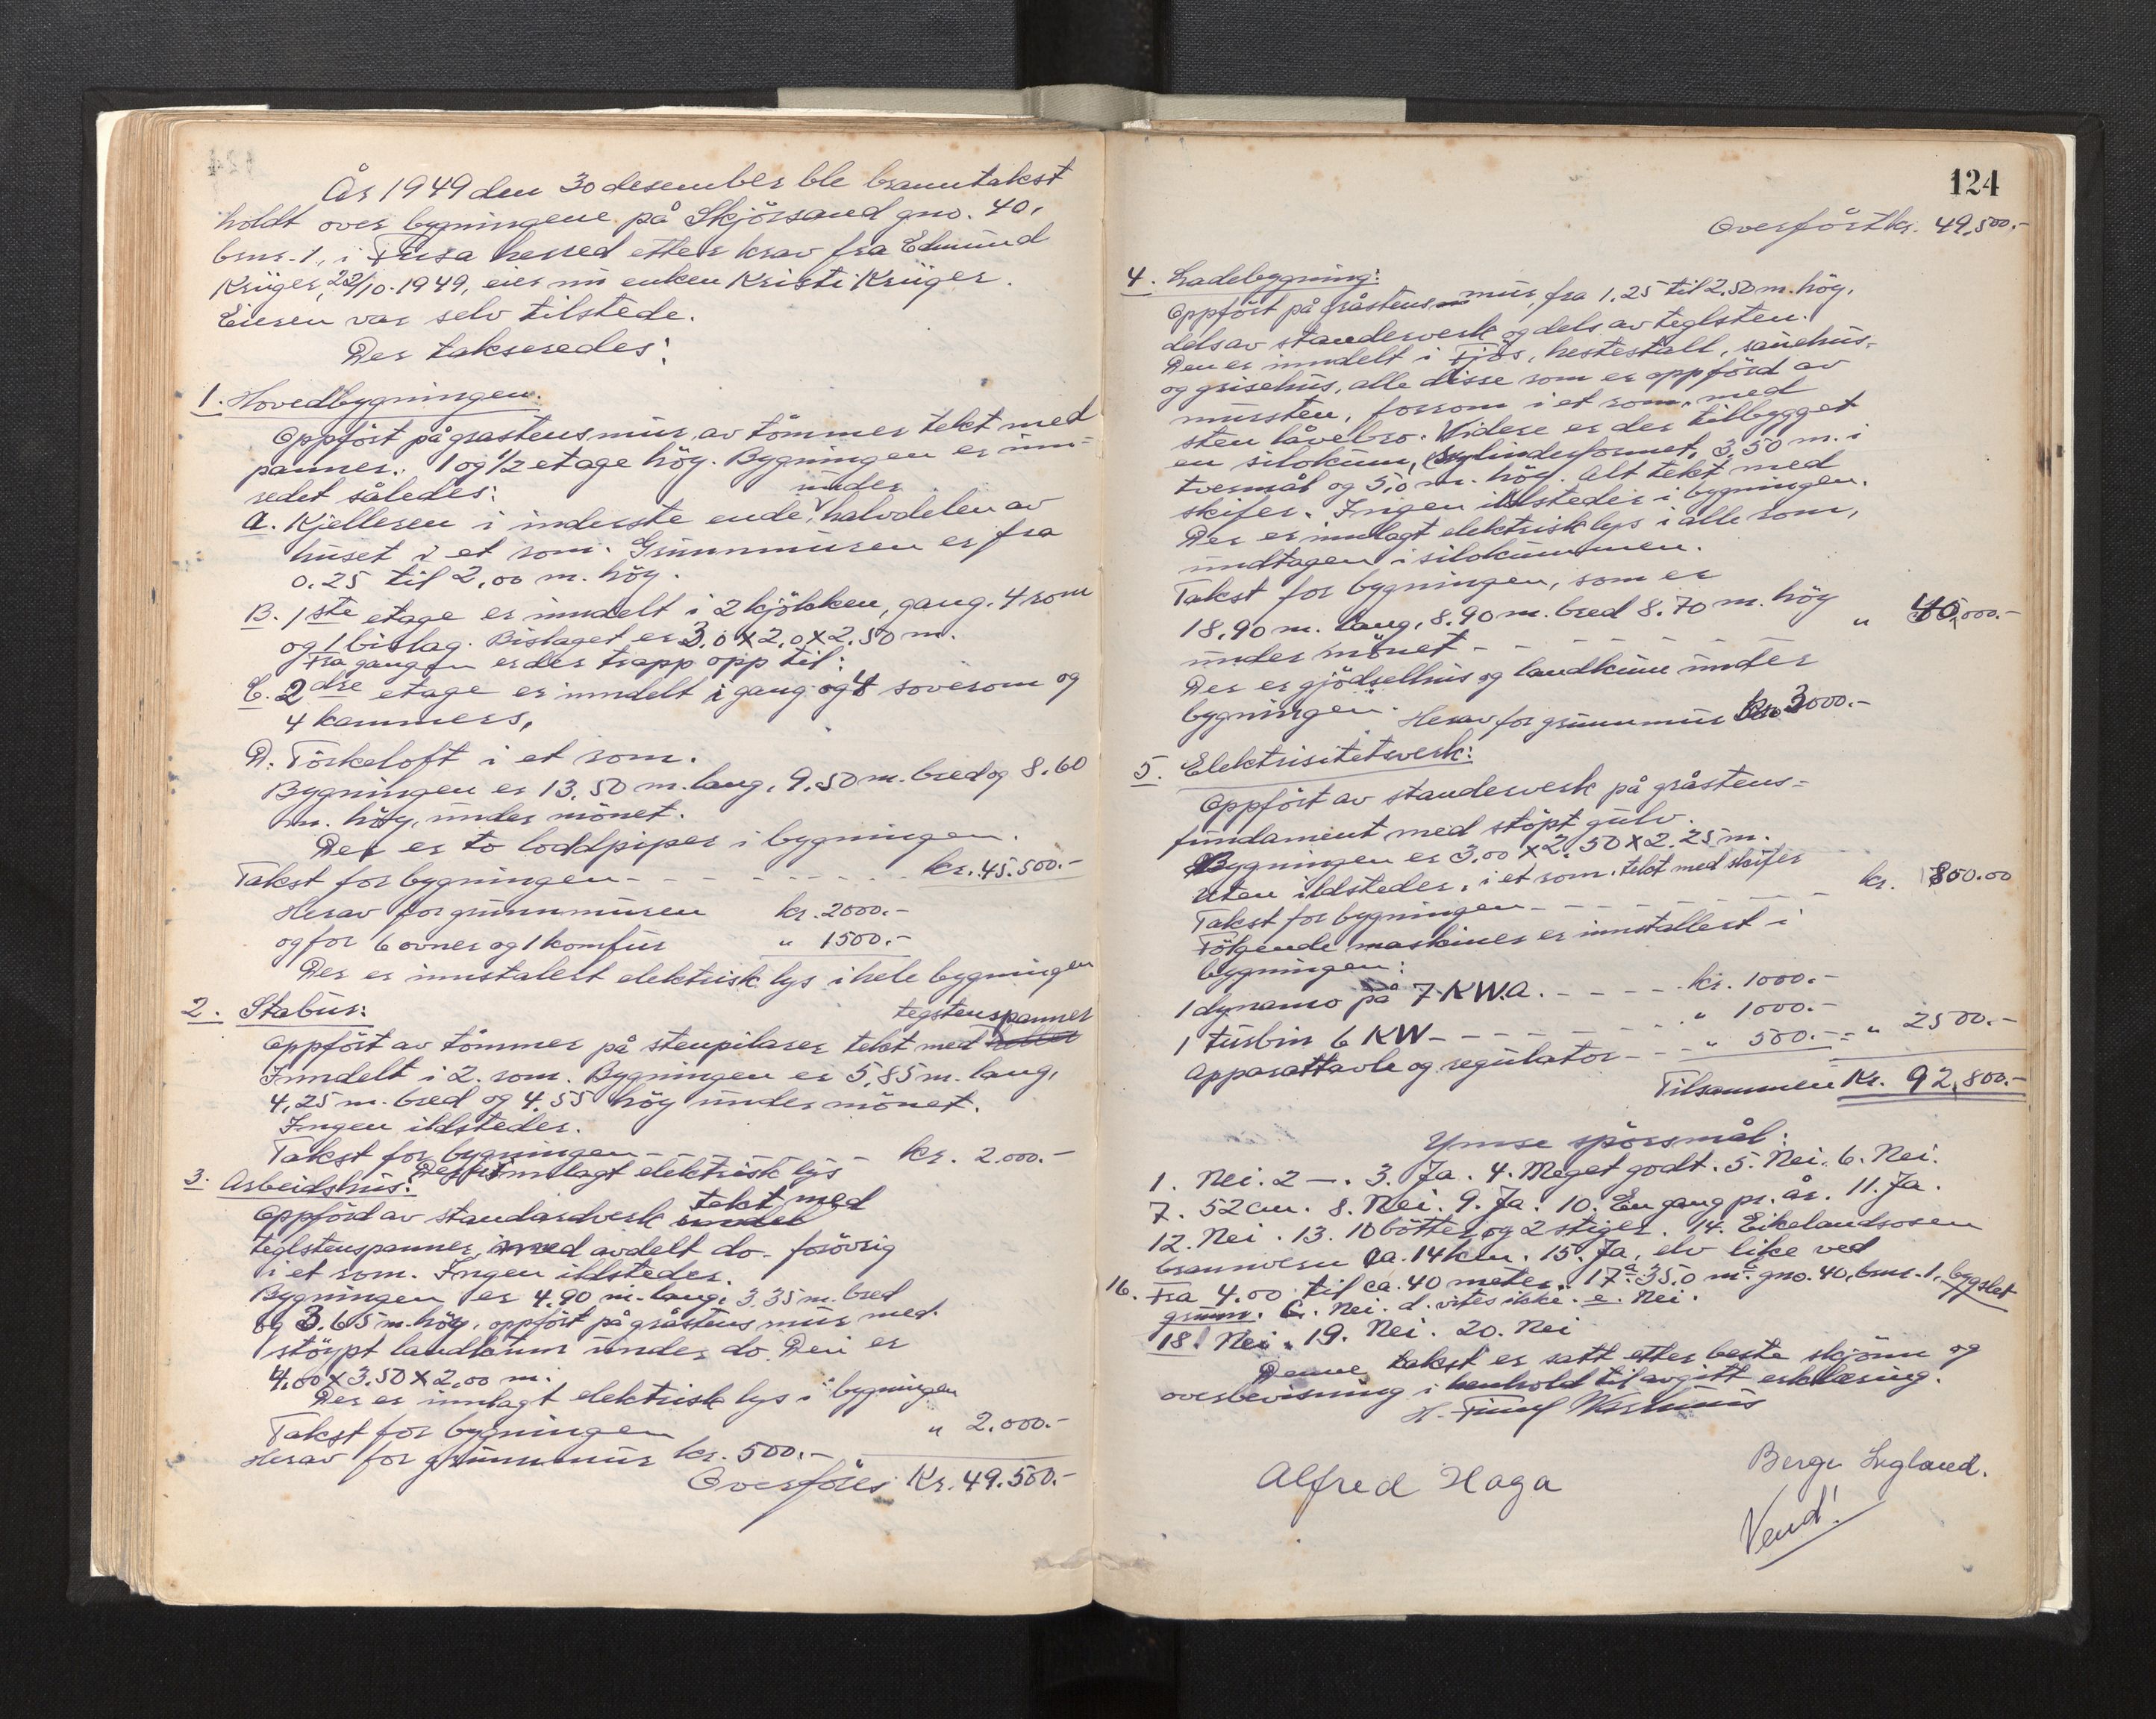 År 1949 den 30 desember ble branntakst
holdt over bygningene på Skjörsand gno. 40,
brnr. 1, i Fusa herred etter krav fra Edmund
Krüger, 22/10-1949, eier nu enken Kristi Krüger.
Eieren var selv tilstede.
Der takseredes:
1. Hovedbygningen.
Oppfört på gråstensmur, av tömmer tekt med
panner. 1 og 1/2 etage höy. Bygningen er inn-
redet således:
under
A. Kjelleren i inderste ende, halvdelen av
huset i et rom. Grunnmuren er fra
0.25 til 2,00 m. höy.
B. 1ste etage er inndelt i 2 kjökken, gang, 4 rom
og 1 bislag. Bislaget er 3,0 x 2,0 x 2,50 m.
Fra gangen er der trapp opp til:
C. 2dre etage er inndelt i gang og 4 soverom og
4 kammers,
D. Törkeloft i et rom.
Bygningen er 13,50 m. lang, 9,50 m. bred og 8,60
m. höy, under mönet.
Der er to loddpiper i bygningen.
Takst for bygningen - - - - - - - - - kr. 45.500.-
Herav for grunnmuren kr. 2000.-
og for 6 ovner og 1 komfür " 1500.-
Der er innstalert elektrisk lys i hele bygningen
2. Stabur:
tegstenspanner
Oppfört av tömmer på stenpilarer tekt med
Inndelt i 2. rom. Bygningen er 5,85 m. lang,
4,25 m. bred og 4,55 höy under mönet.
Ingen ildsteder.
Takst for bygningen - - - - - - kr. 2.000.-
Der er innlagt elektrisk lys
3. Arbeidshus:
tekt med
Oppförd av standardverk
teglstenspanner, med avdelt do. forövrig
i et rom. Ingen ildsteder.
Bygningen er 4,90 m. lang, 3.35 m. bred
og 3,65 m. höy, oppfört på gråstens mur med
stöypt landkum under do. Den er
4,00 x 3,50 x 2,00 m.
Der er innlagt elektrisk lys i bygningen
Takst for bygningen " 2.000.-
Herav for grunnmur kr. 500.-
Overföres Kr. 49.500.-
124
Overfört kr. 49,500.-
4. Ladebygning:
Oppfört på gråstensmur, fra 1,25 til 2,50 m. höy,
dels av standerverk og dels av teglsten.
Den er inndelt i Fjös, hestestall, sauehus-
og grisehus, alle disse som er oppförd av
mursten, forrom i et rom, med
sten låvebro. Videre er der tilbygget
en silokum, sylinderformet, 3,50 m. i
tvermål og 5,0 m. höy. Alt tekt med
skifer. Ingen ildsteder i bygningen.
Der er innlagt elektrisk lys i alle rom,
undtagen i silokummen.
Takst for bygningen, som er
18,90 m. lang, 8.90 m. bred 8.70 m. höy
under mönet - - - - - - - " 40,000.-
Der er gjödselhus og landkum under
bygningen. Herav for grunnmur Kr. 3000.-
5. Elektrisitetsverk:
Oppfört av standerverk på gråstens-
fundament med stöpt gulv.
Bygningen er 3,00 x 2,50 x 2.25 m.
Uten ildsteder, i et rom. tekt med skifer
Takst for bygningen - - - - - - - - kr. 800.00
Fölgende maskiner er innstallert i
bygningen:
1 dynamo på 7 KW.A. - - - - kr. 1000.-
1 turbin 6 KW - - - - - - - " 1000.-
Apparattavle og regulator - - - " 500.- - " 2500.-
Tilsammen Kr. 92,800.-
Ymse spörsmål:
1. Nei. 2 -. 3. Ja. 4. Meget godt. 5. Nei. 6. Nei.
7. 52 cm. 8. Nei. 9. Ja. 10. En gang pr. år. 11. Ja.
12. Nei. 13. 10 bötter og 2 stiger. 14. Eikelandsosen
brannvern ca. 14 km. 15. Ja, elv like ved
16. Fra 4.00 til ca. 40 meter. 17 a 35,0 m. gno. 40, brnr. 1. bygslet
grunn. C. Nei. d. vites ikke. e. Nei.
18. Nei. 19. Nei. 20. Nei
Denne takst er satt etter beste skjönn og
overbevisning i henhold til avgitt erklæring.
Alfred Haga
Berge Lygland.
Vend!